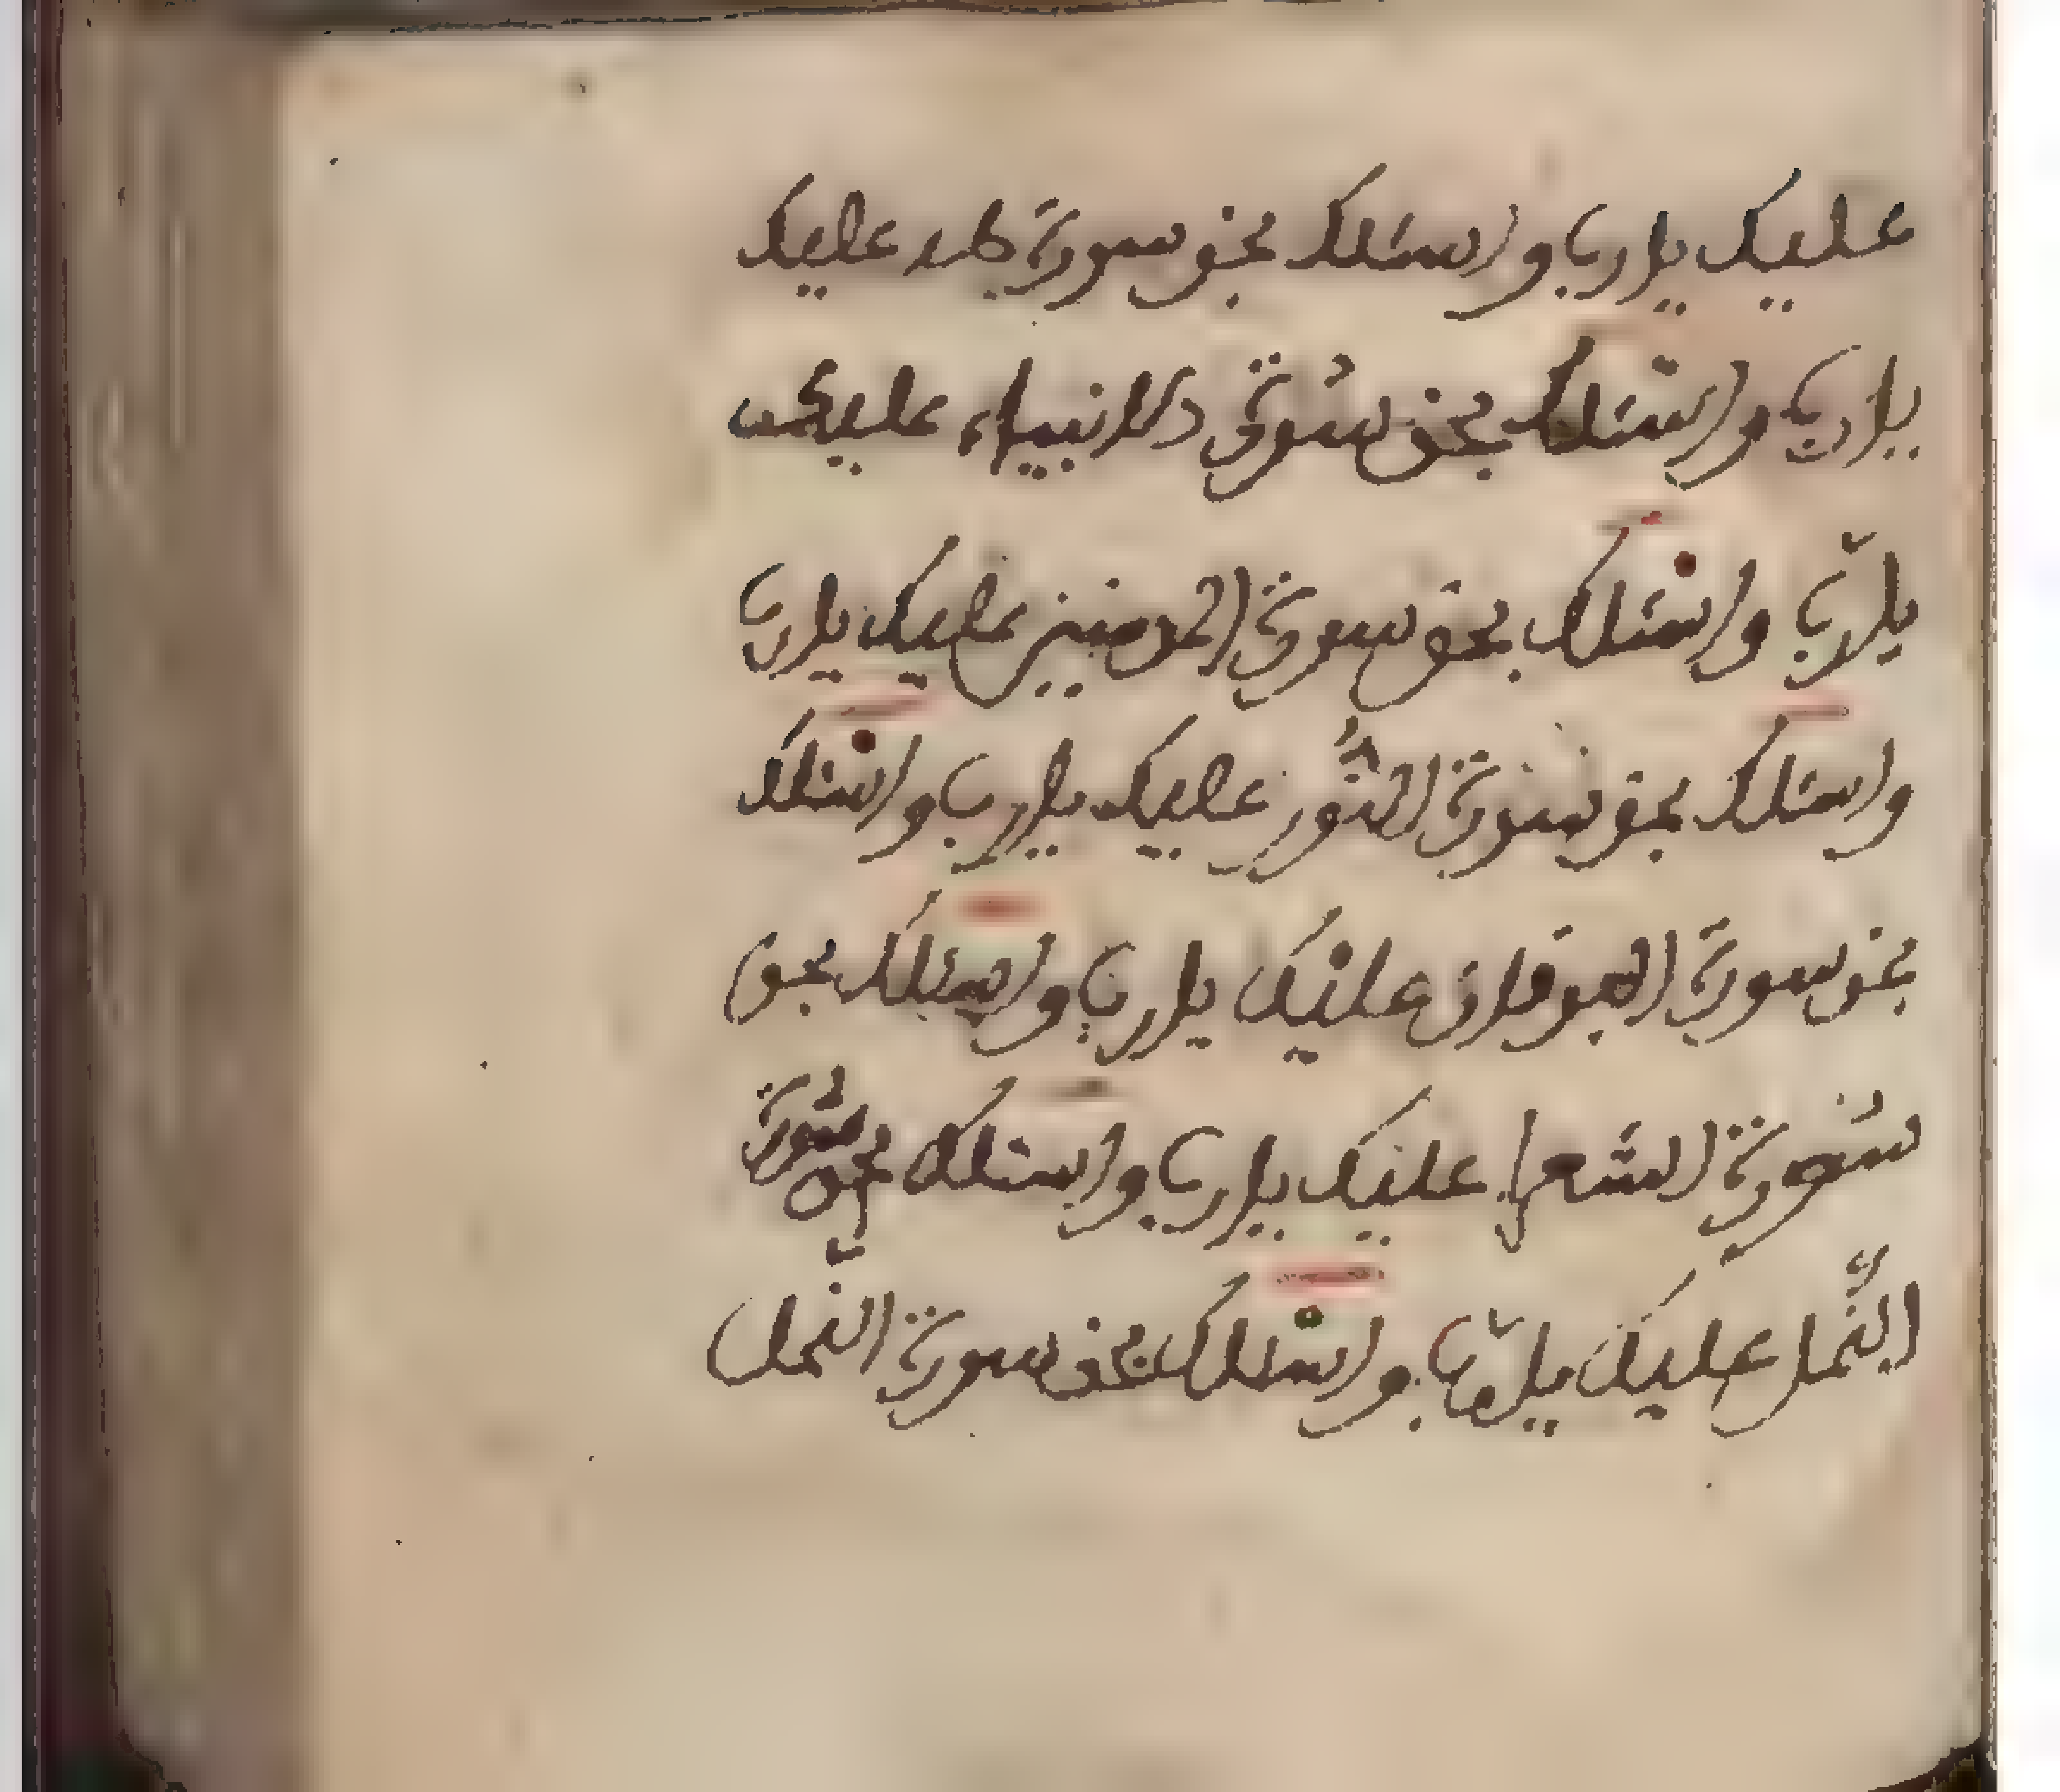 عليك يا رب واسئلك بحق سورة طه عليك
يا رب واسئلك بحق سورة الانبياء عليك
يا رب واسئلك بحق سورة المومنين عليك يا رب
واسئلك بحق سورة النور عليك يا رب واسئلك
بحق سورة الفرقان عليك يا رب واسئلك بحق
سورة الشعرا عليك يا رب واسئلك بحق سورة
النمل عليك يا رب واسئلك بحق سورة النمل